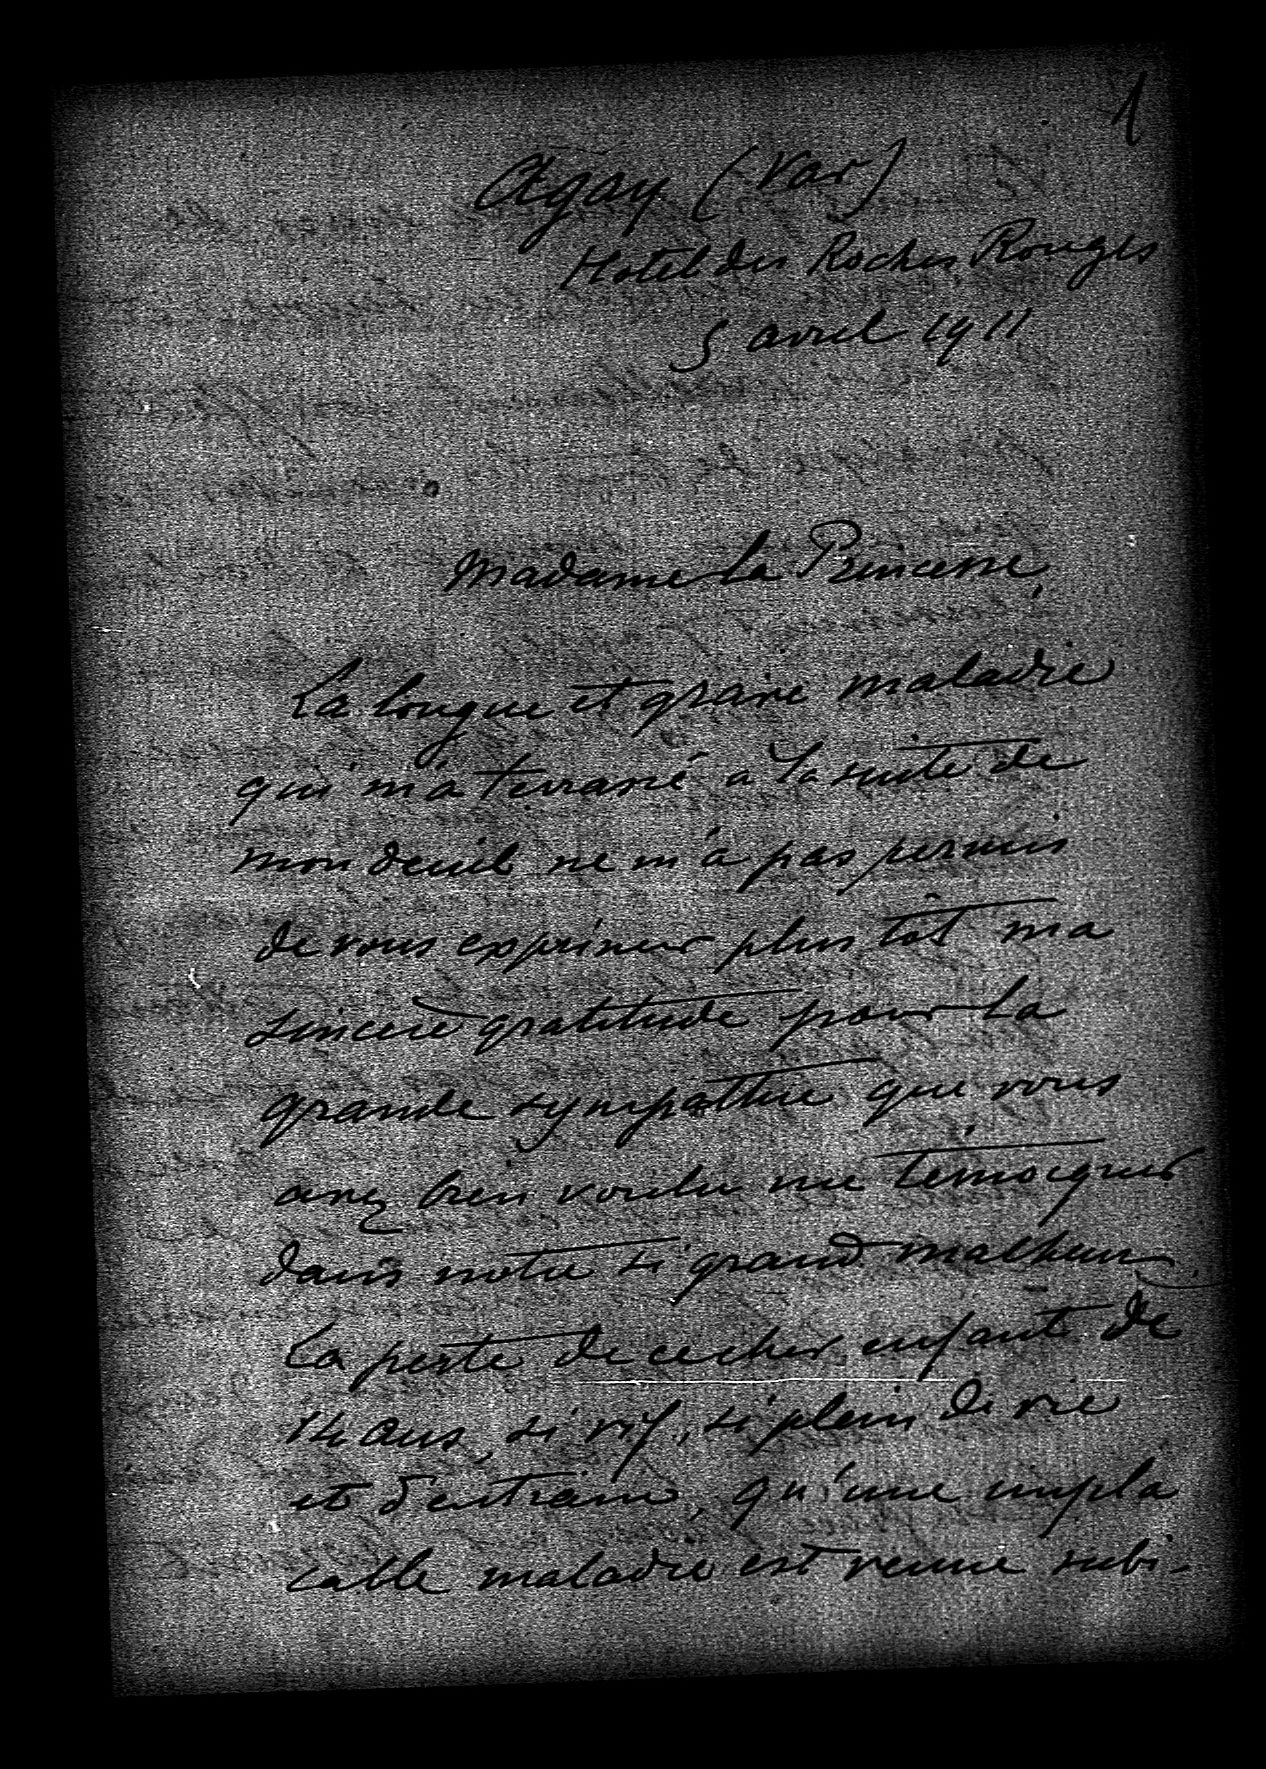 1
Agay (Var)
Hotel des Roches Rouges
5 avril 1911
Madame la Princesse,
La longue et grave maladie
qui m'a terrassé a la suite de
mon deuil ne m'a pas permis
de vous exprimer plus tôt ma
sincère gratitude pour la
grande sympathie que vous
avez bien voulu me témoigner
dans notre si grand malheur.
La perte de ce cher enfant de
14 ans, si vif, si plein de vie
et d'entrain, qu'une impla
cable maladie est venue subi-